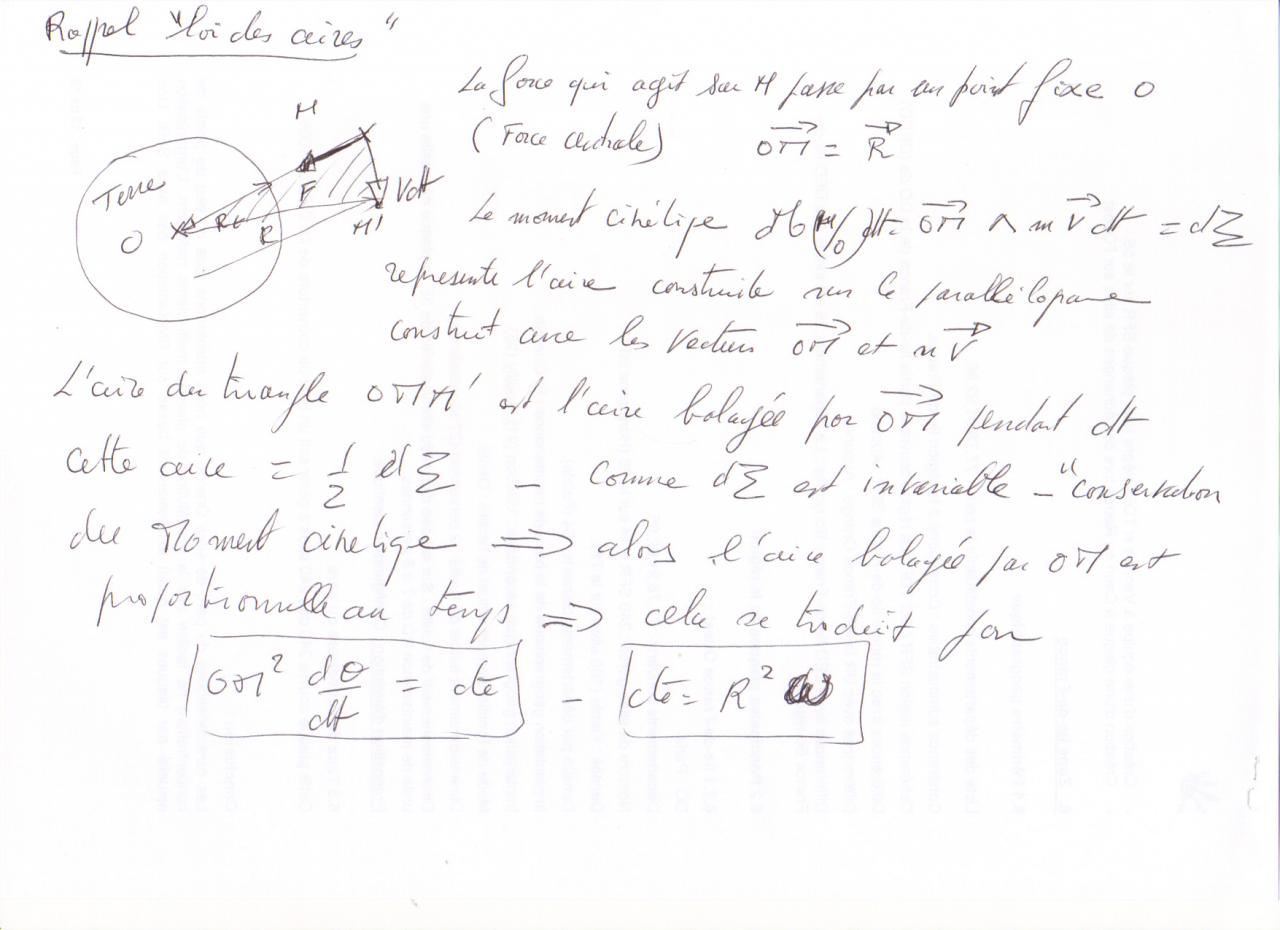 Rappel "loi des aires"
La force qui agit sur M passe par un point fixe O
(Force centrale) OM = R
M
Terre
O
Rt
R
F
Vdt
M'
Le moment cinétique (M/O)dt = OM ∧ m V dt = dΣ
represente l'aire construite sur le parallélograme
construit avec les vecteurs OM et mV
L'aire du triangle OMM' est l'aire balayée par OM pendant dt
cette aire = 1/2 dΣ – comme dΣ est invariable – "conservation
du Moment cinetique ⇒ alors l'aire balayée par OM est
proportionnelle au temps ⇒ cela se traduit par
OM² dθ/dt = cte – cte = R² ω